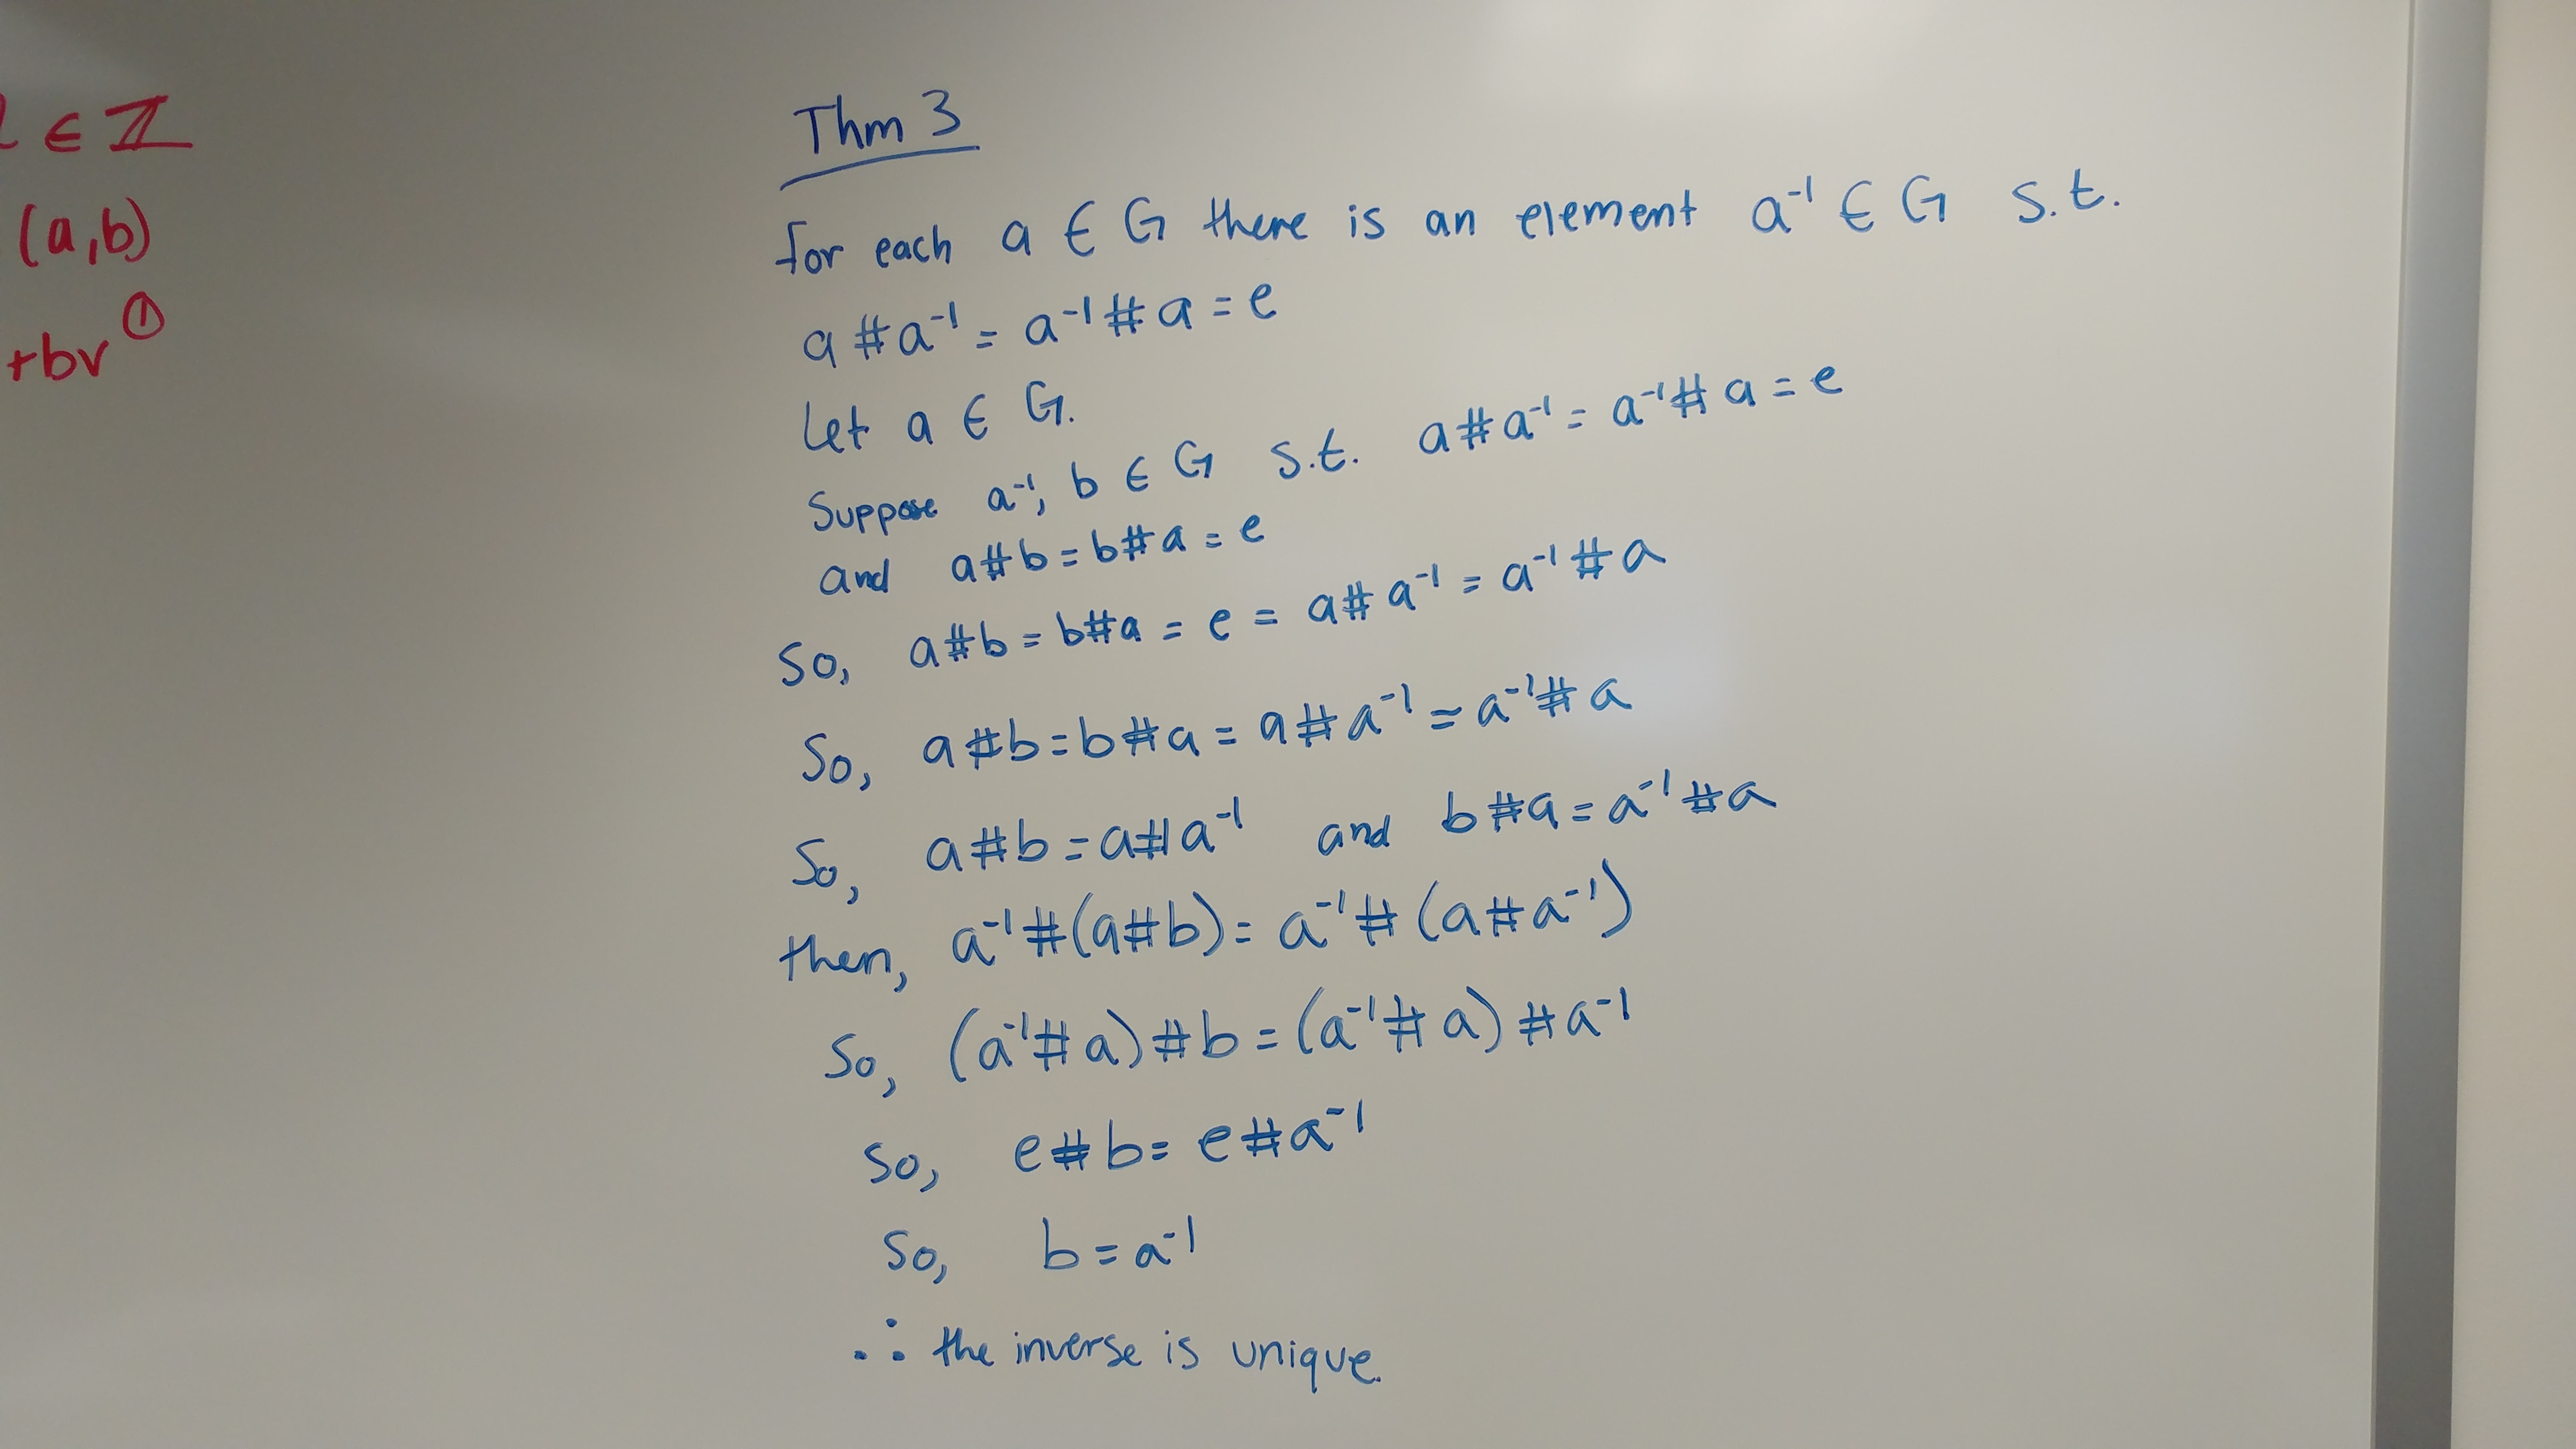 ∈ ℤ
(a,b)
+bv ①
Thm 3
for each a ∈ G there is an element a⁻¹ ∈ G s.t.
a # a⁻¹ = a⁻¹ # a = e
Let a ∈ G.
Suppose a⁻¹, b ∈ G s.t. a # a⁻¹ = a⁻¹ # a = e
and a # b = b # a = e
So, a # b = b # a = e = a # a⁻¹ = a⁻¹ # a
So, a # b = b # a = a # a⁻¹ = a⁻¹ # a
So, a # b = a # a⁻¹ and b # a = a⁻¹ # a
then, a⁻¹ # (a # b) = a⁻¹ # (a # a⁻¹)
So, (a⁻¹ # a) # b = (a⁻¹ # a) # a⁻¹
So, e # b = e # a⁻¹
So, b = a⁻¹
∴ the inverse is unique.